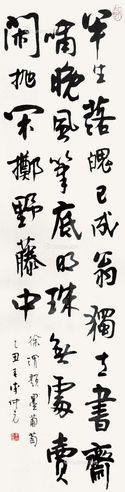 半生落魄已成翁獨立書齋
嘯晚風筆底明珠無處賣
閑拋閑擲野藤中
徐渭題墨葡萄
乙丑